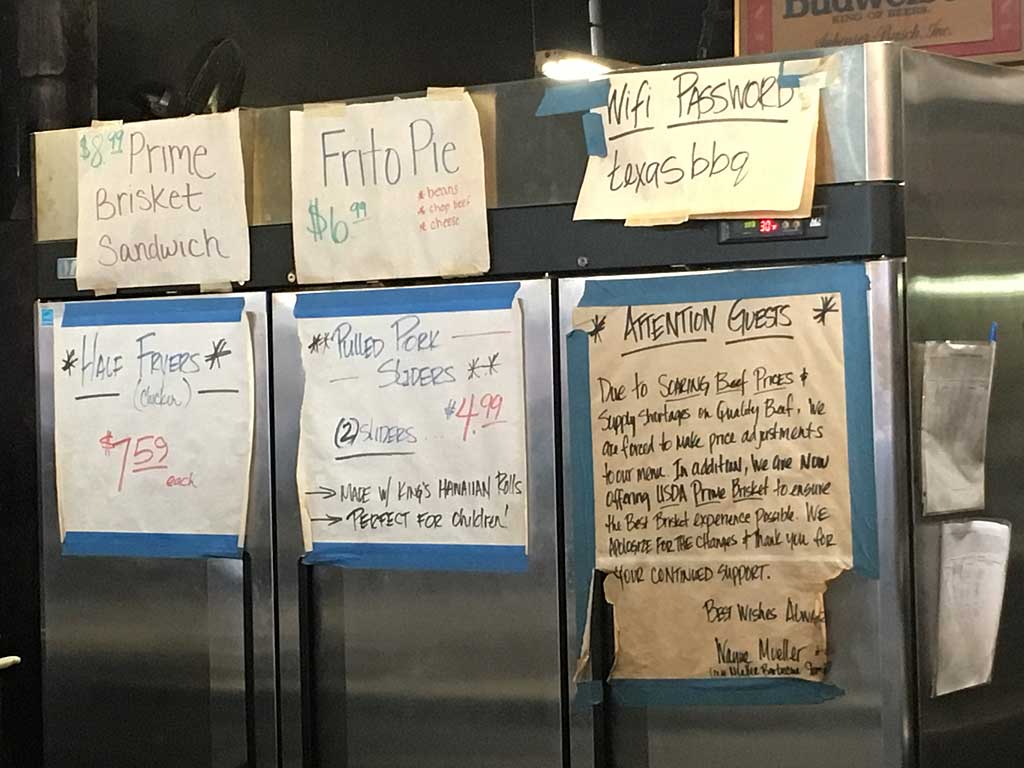 Budweiser
KING OF BEERS.
Anheuser-Busch, Inc.
$8.99 Prime
Brisket
Sandwich
Frito Pie
$6.99
* beans
* chop beef
* cheese
Wifi PASSWORD
texasbbq
30
* HALF FRYERS *
(chicken)
$7.59
each
** PULLED PORK
SLIDERS **
$4.99
(2) SLIDERS...
→ MADE W/ KING'S HAWAIIAN Rolls
→ PERFECT FOR children!
* ATTENTION GUESTS *
Due to SOARING Beef PRICES &
Supply shortages on Quality Beef, We
are forced to make price adjustments
to our menu. In addition, We are Now
offering USDA Prime Brisket to ensure
the Best Brisket experience Possible. WE
APOLOGIZE FOR THE changes & thank you for
YOUR CONTINUED SUPPORT.
Best Wishes Always
Wayne Mueller